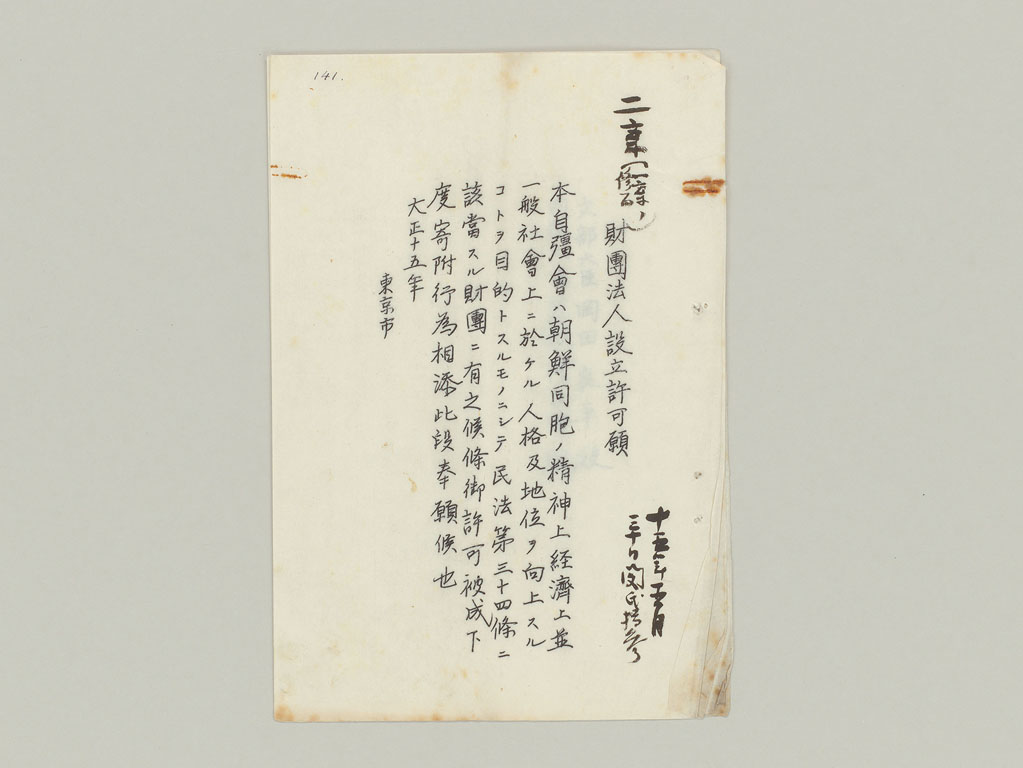 141.
二重
財團法人設立許可願
本自彊會ハ朝鮮同胞ノ精神上経濟上並
一般社會上ニ於ケル人格及地位ヲ向上スル
コトヲ目的トスルモノニシテ民法第三十四條ニ
該當スル財團ニ有之候條御許可被成下
度寄附行為相添此段奉願候也
大正十五年
東京市
十五年五月
三十日閔氏持参